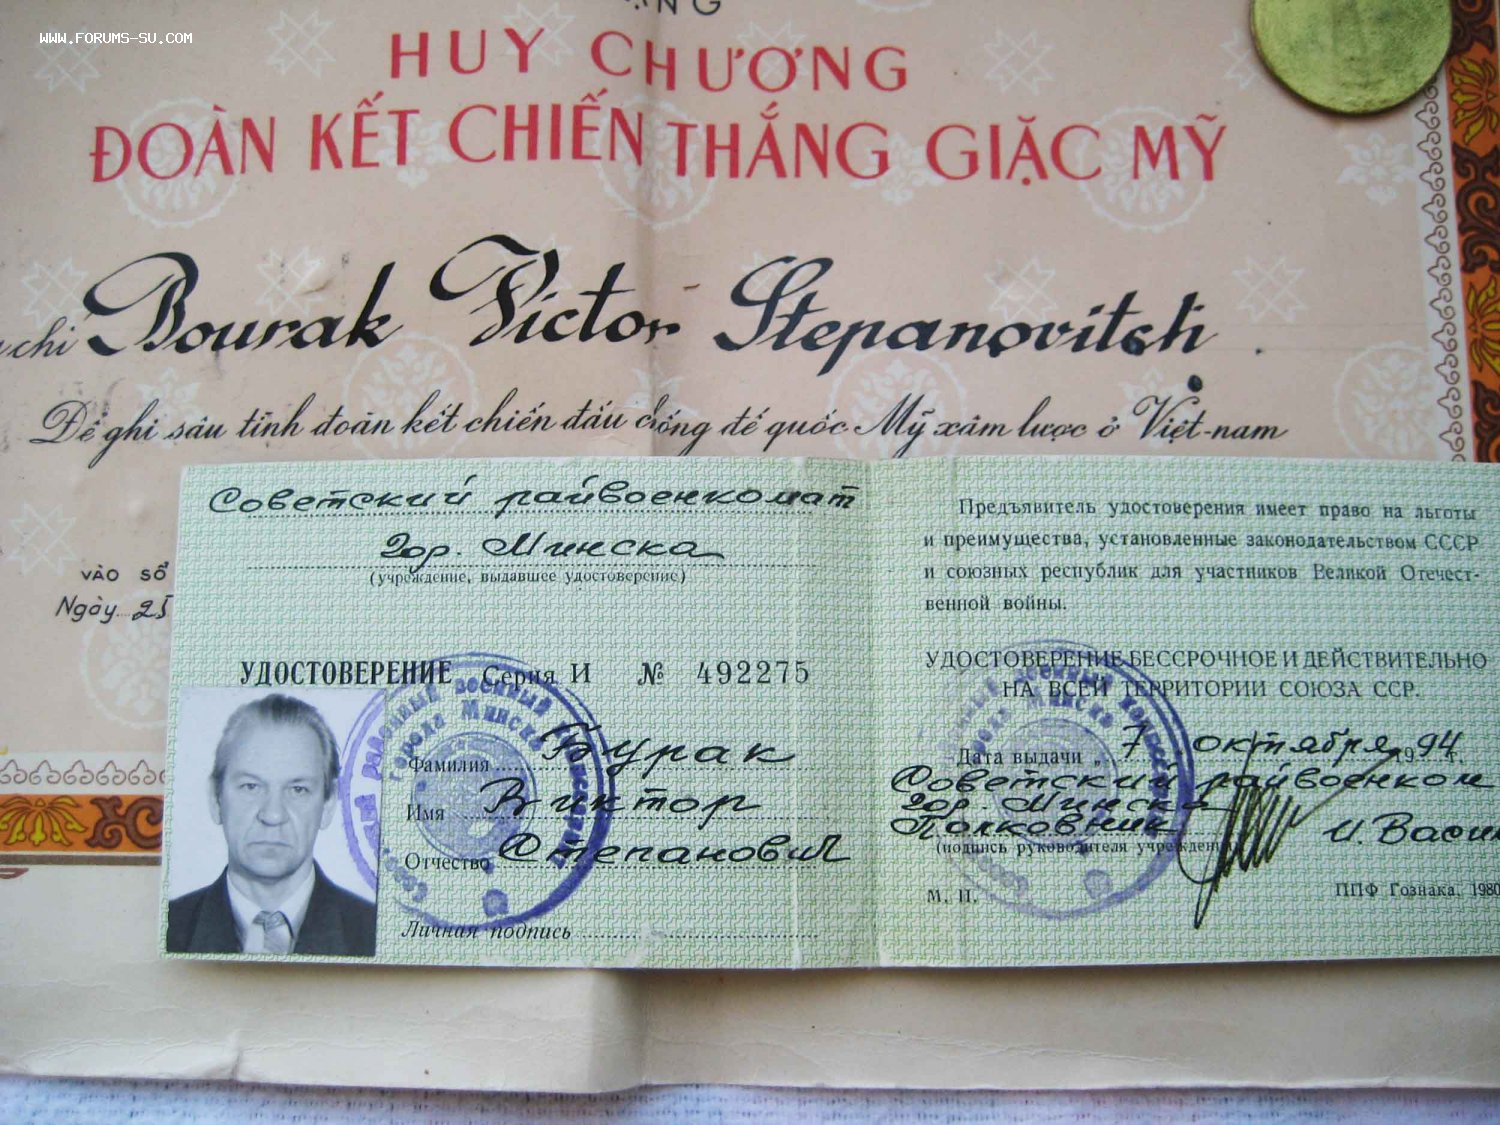 WWW.FORUMS-SU.COM
HUY CHƯƠNG
ĐOÀN KẾT CHIẾN THẮNG GIẶC MỸ
chí Bourak Victor Stepanovitch
Để ghi sâu tình đoàn kết chiến đấu chống đế quốc Mỹ xâm lược ở Việt-nam
VÀO SỔ
Ngày 25
Советский райвоенкомат
гор. Минска
(учреждение, выдавшее удостоверение)
УДОСТОВЕРЕНИЕ Серия И № 492275
Фамилия Бурак
Имя Виктор
Отчество Степанович
Личная подпись
Предъявитель удостоверения имеет право на льготы
и преимущества, установленные законодательством СССР
и союзных республик для участников Великой Отечест-
венной войны.
УДОСТОВЕРЕНИЕ БЕССРОЧНОЕ И ДЕЙСТВИТЕЛЬНО
НА ВСЕЙ ТЕРРИТОРИИ СОЮЗА ССР.
Дата выдачи „ 7 октября 1994 г.
Советский райвоенком
гор. Минска
Полковник И. Васи
(подпись руководителя учреждения)
М. П.
ППФ Гознака. 1980